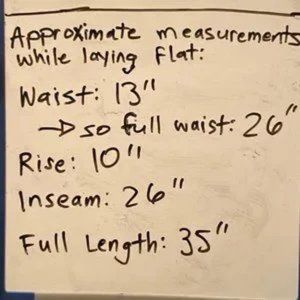 Approximate measurements
while laying flat:
Waist: 13"
→ so full waist: 26"
Rise: 10"
Inseam: 26"
Full Length: 35"